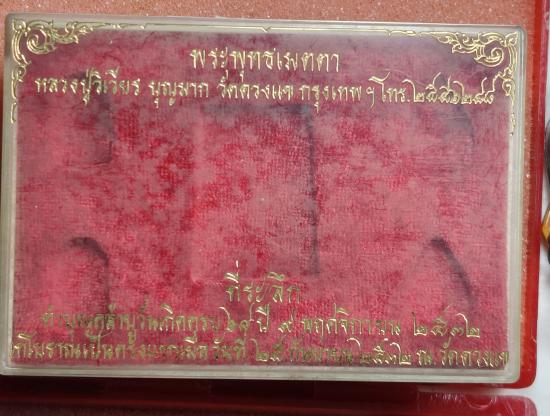 พระพุทธเมตตา
หลวงปู่วิเวียร บุญมาก วัดดวงแข กรุงเทพฯ โทร.๒๕๕๖๒๘๘
ที่ระลึก
ทำบุญคล้ายวันเกิดครบ ปี ๙ พฤศจิกายน ๒๕๓๒
เป็นครั้งแรกเมื่อวันที่ ๒๕ กันยายน ๒๕๓๒ ณ วัดดวงแข